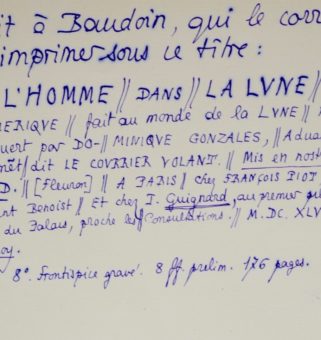 it à Baudoin, qui le corr
imprimer sous ce titre :
L'HOMME // DANS // LA LVNE //
MERIQVE // fait au monde de la LVNE //
uert par DO- // MINIQVE GONZALES, // Adua
nêt // dit LE COVRRIER VOLANT. // Mis en nost
D. // [Fleuron] // A PARIS // chez FRANÇOIS PIOT
nt Benoist // Et chez J. Guignard, au premier pi
du Palais, proche les // Consultations. // M. DC. XLV
oy.
8°. Frontispice gravé. 8 ff. prelim. 176 pages.